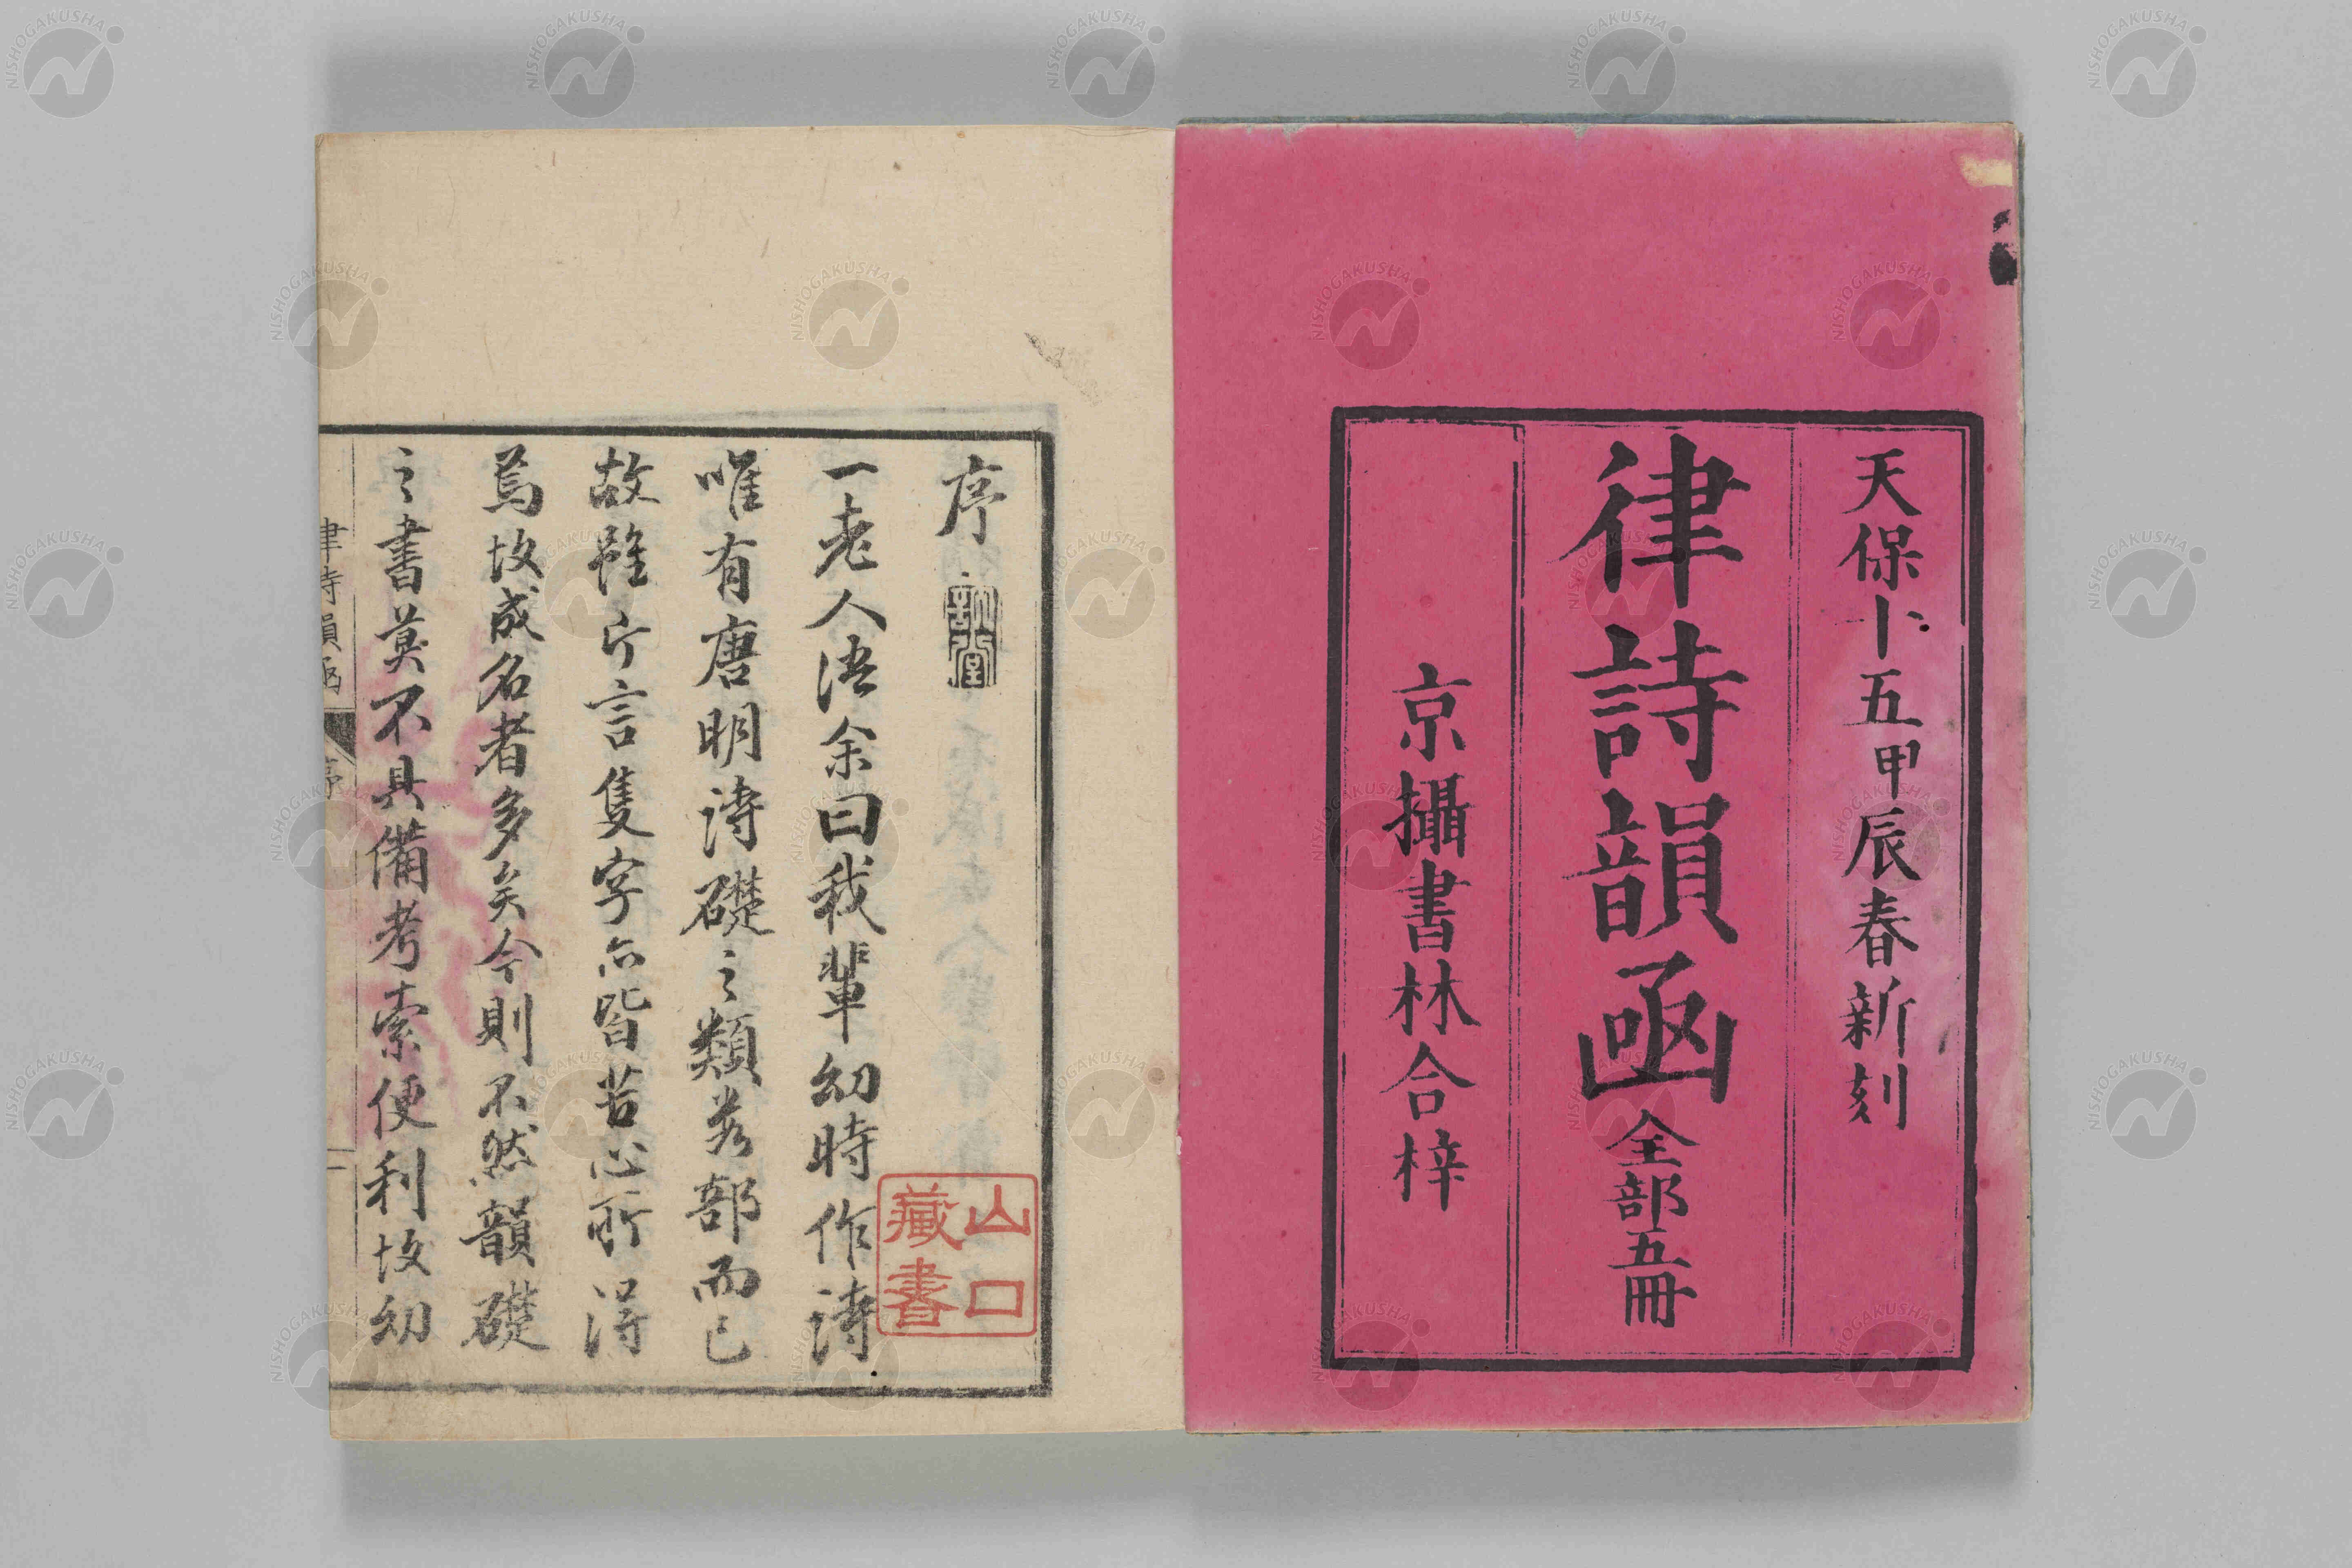 天保十五甲辰春新刻
律詩韻函全部五冊
京攝書林合梓
序
一老人語余曰我輩幼時作詩
唯有唐明詩礎之類若部而已
故雖片言隻字亦皆苦心所得
焉故成名者多矣今則不然韻礎
之書莫不具備考索便利故幼
律詩韻函 序 一
山口
藏書
NISHOGAKUSHA